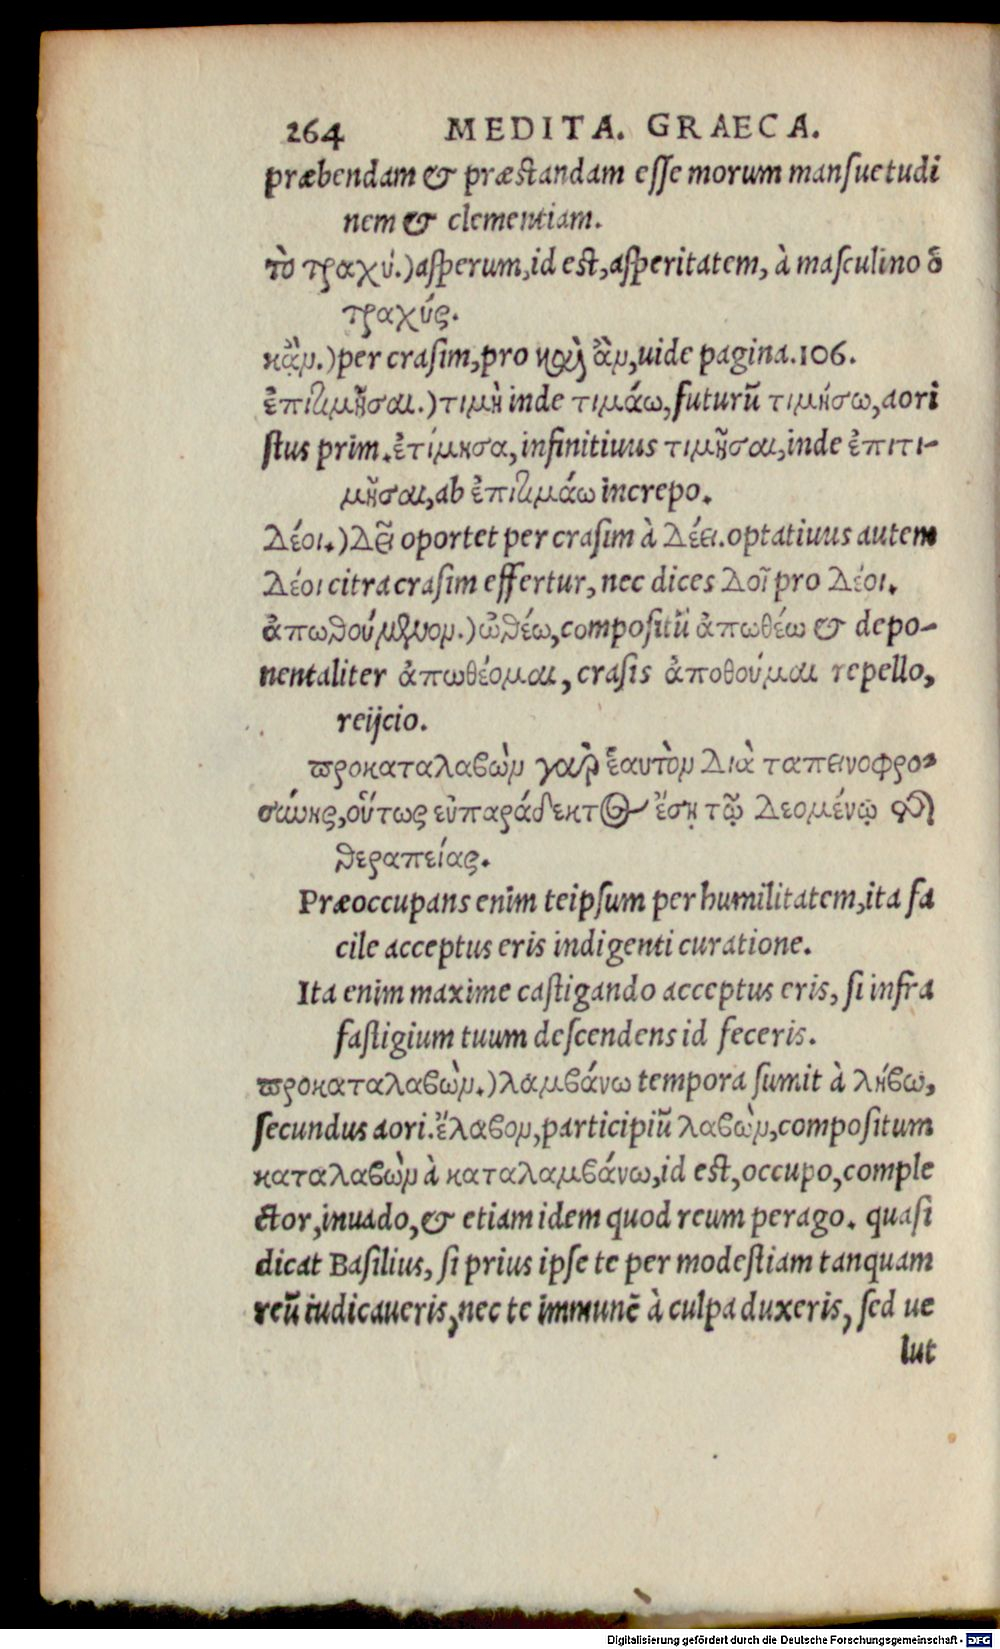 264 MEDITA. GRAECA.
præbendam & præstandam esse morum mansuetudi
nem & clementiam.
τὸ τραχύ.) asperum, id est, asperitatem, à masculino ὁ
τραχύς.
κᾂν.) per crasim, pro καὶ ἂν, uide pagina. 106.
ἐπιτιμῆσαι.) τιμὴ inde τιμάω, futurũ τιμήσω, aori
stus prim. ἐτίμησα, infinitiuus τιμῆσαι, inde ἐπιτι-
μῆσαι, ab ἐπιτιμάω increpo.
Δέοι.) Δεῖ oportet per crasim à Δέει. optatiuus autem
Δέοι citra crasim effertur, nec dices Δοῖ pro Δέοι.
ἀπωθούμενον.) ὠθέω, compositũ ἀπωθέω & depo-
nentaliter ἀπωθέομαι, crasis ἀποθούμαι repello,
reijcio.
προκαταλαβὼν γὰρ ἑαυτὸν Διὰ ταπεινοφρο-
σύνης, οὕτως εὐπαράδεκτος ἔσῃ τῷ Δεομένῳ τῆς
θεραπείας.
Præoccupans enim teipsum per humilitatem, ita fa
cile acceptus eris indigenti curatione.
Ita enim maxime castigando acceptus eris, si infra
fastigium tuum descendens id feceris.
προκαταλαβὼν.) λαμβάνω tempora sumit à λήβω,
secundus aori. ἔλαβον, participiũ λαβὼν, compositum
καταλαβὼν à καταλαμβάνω, id est, occupo, comple
ctor, inuado, & etiam idem quod reum perago. quasi
dicat Basilius, si prius ipse te per modestiam tanquam
reũ iudicaueris, nec te immunẽ à culpa duxeris, sed ue
lut
Digitalisierung gefördert durch die Deutsche Forschungsgemeinschaft - DFG